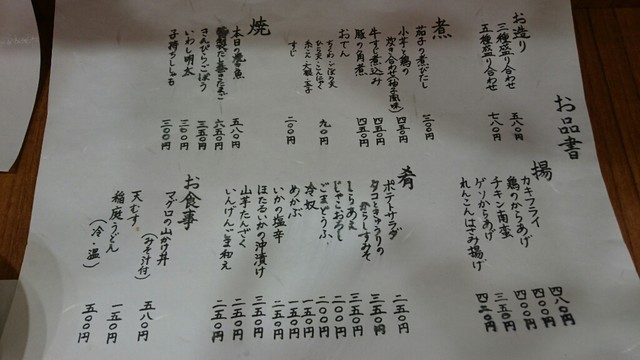 お品書
お造り
三種盛り合わせ 五八〇円
五種盛り合わせ 七八〇円
煮
茄子の煮びたし 三〇〇円
小芋と鶏の
炊き合わせ(柚子風味) 四五〇円
牛すじ煮込み 四五〇円
豚の角煮 四五〇円
おでん
ちくわ・ごぼう天
九〇円
すじ 二〇〇円
焼
本日の焼き魚 五八〇円
六五〇円
きんぴらごぼう 三五〇円
いわし明太 三〇〇円
子持ちししゃも 三〇〇円
揚
カキフライ 四八〇円
鶏のからあげ 四〇〇円
チキン南蛮 四五〇円
ゲソからあげ 三五〇円
れんこんはさみ揚げ 四三〇円
肴
ポテトサラダ 二五〇円
タコときゅうりの
からしすみそ 三五〇円
しらあえ 三五〇円
じゃこおろし 二〇〇円
ごまどうふ 二〇〇円
冷奴 一五〇円
めかぶ 一五〇円
いかの塩辛 二五〇円
ほたるいかの沖漬け 三五〇円
山芋たんざく 二五〇円
いんげんごま和え 二五〇円
お食事
マグロの山かけ丼
(みそ汁付) 五八〇円
天むす 一五〇円
稲庭うどん
(冷・温) 五〇〇円